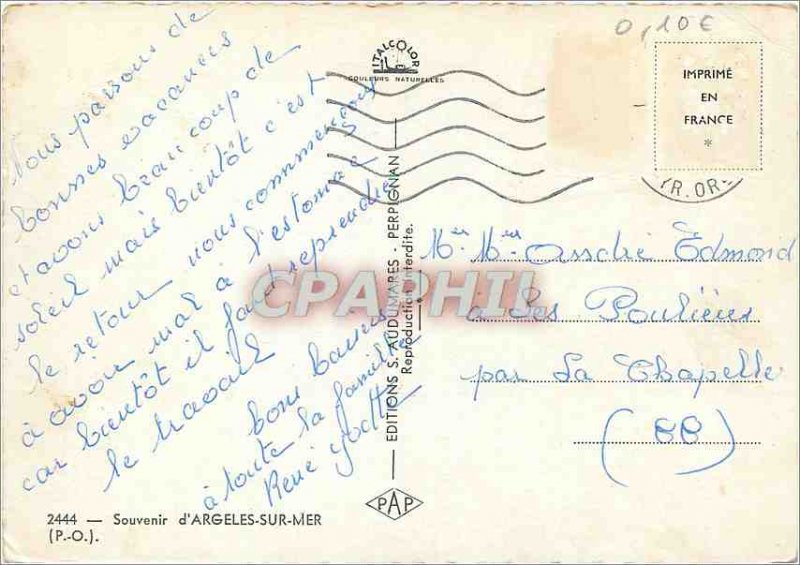 Nous passons de
bonnes vacances
et avons beaucoup de
soleil mais bientôt c'est
le retour nous commençons
à avoir mal à l'estomac
car bientôt il faut reprendre
le travail
Bons baisers
à toute la famille
René Yvette
ITALCOLOR
COULEURS NATURELLES
EDITIONS S. AUDUMARES - PERPIGNAN
Reproduction interdite.
PAP
0,10€
IMPRIMÉ
EN
FRANCE
*
R. OR
Edmond
à Les
par La Chapelle
CPARAPHIL
2444 — Souvenir d'ARGELES-SUR-MER
(P.-O.).